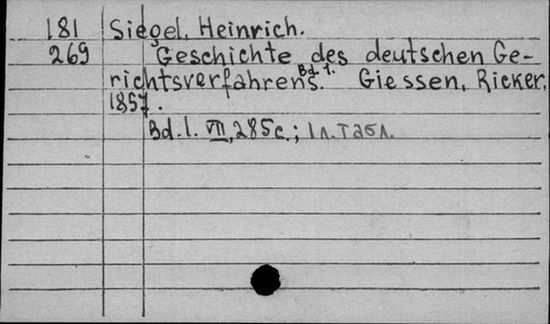 181 Siegel, Heinrich.
269 Geschichte des deutschen Ge-
richtsverfahrens. Bd. 1. Giessen, Ricker,
1857.
Bd. 1. VII, 285 с.; 1 л. табл.